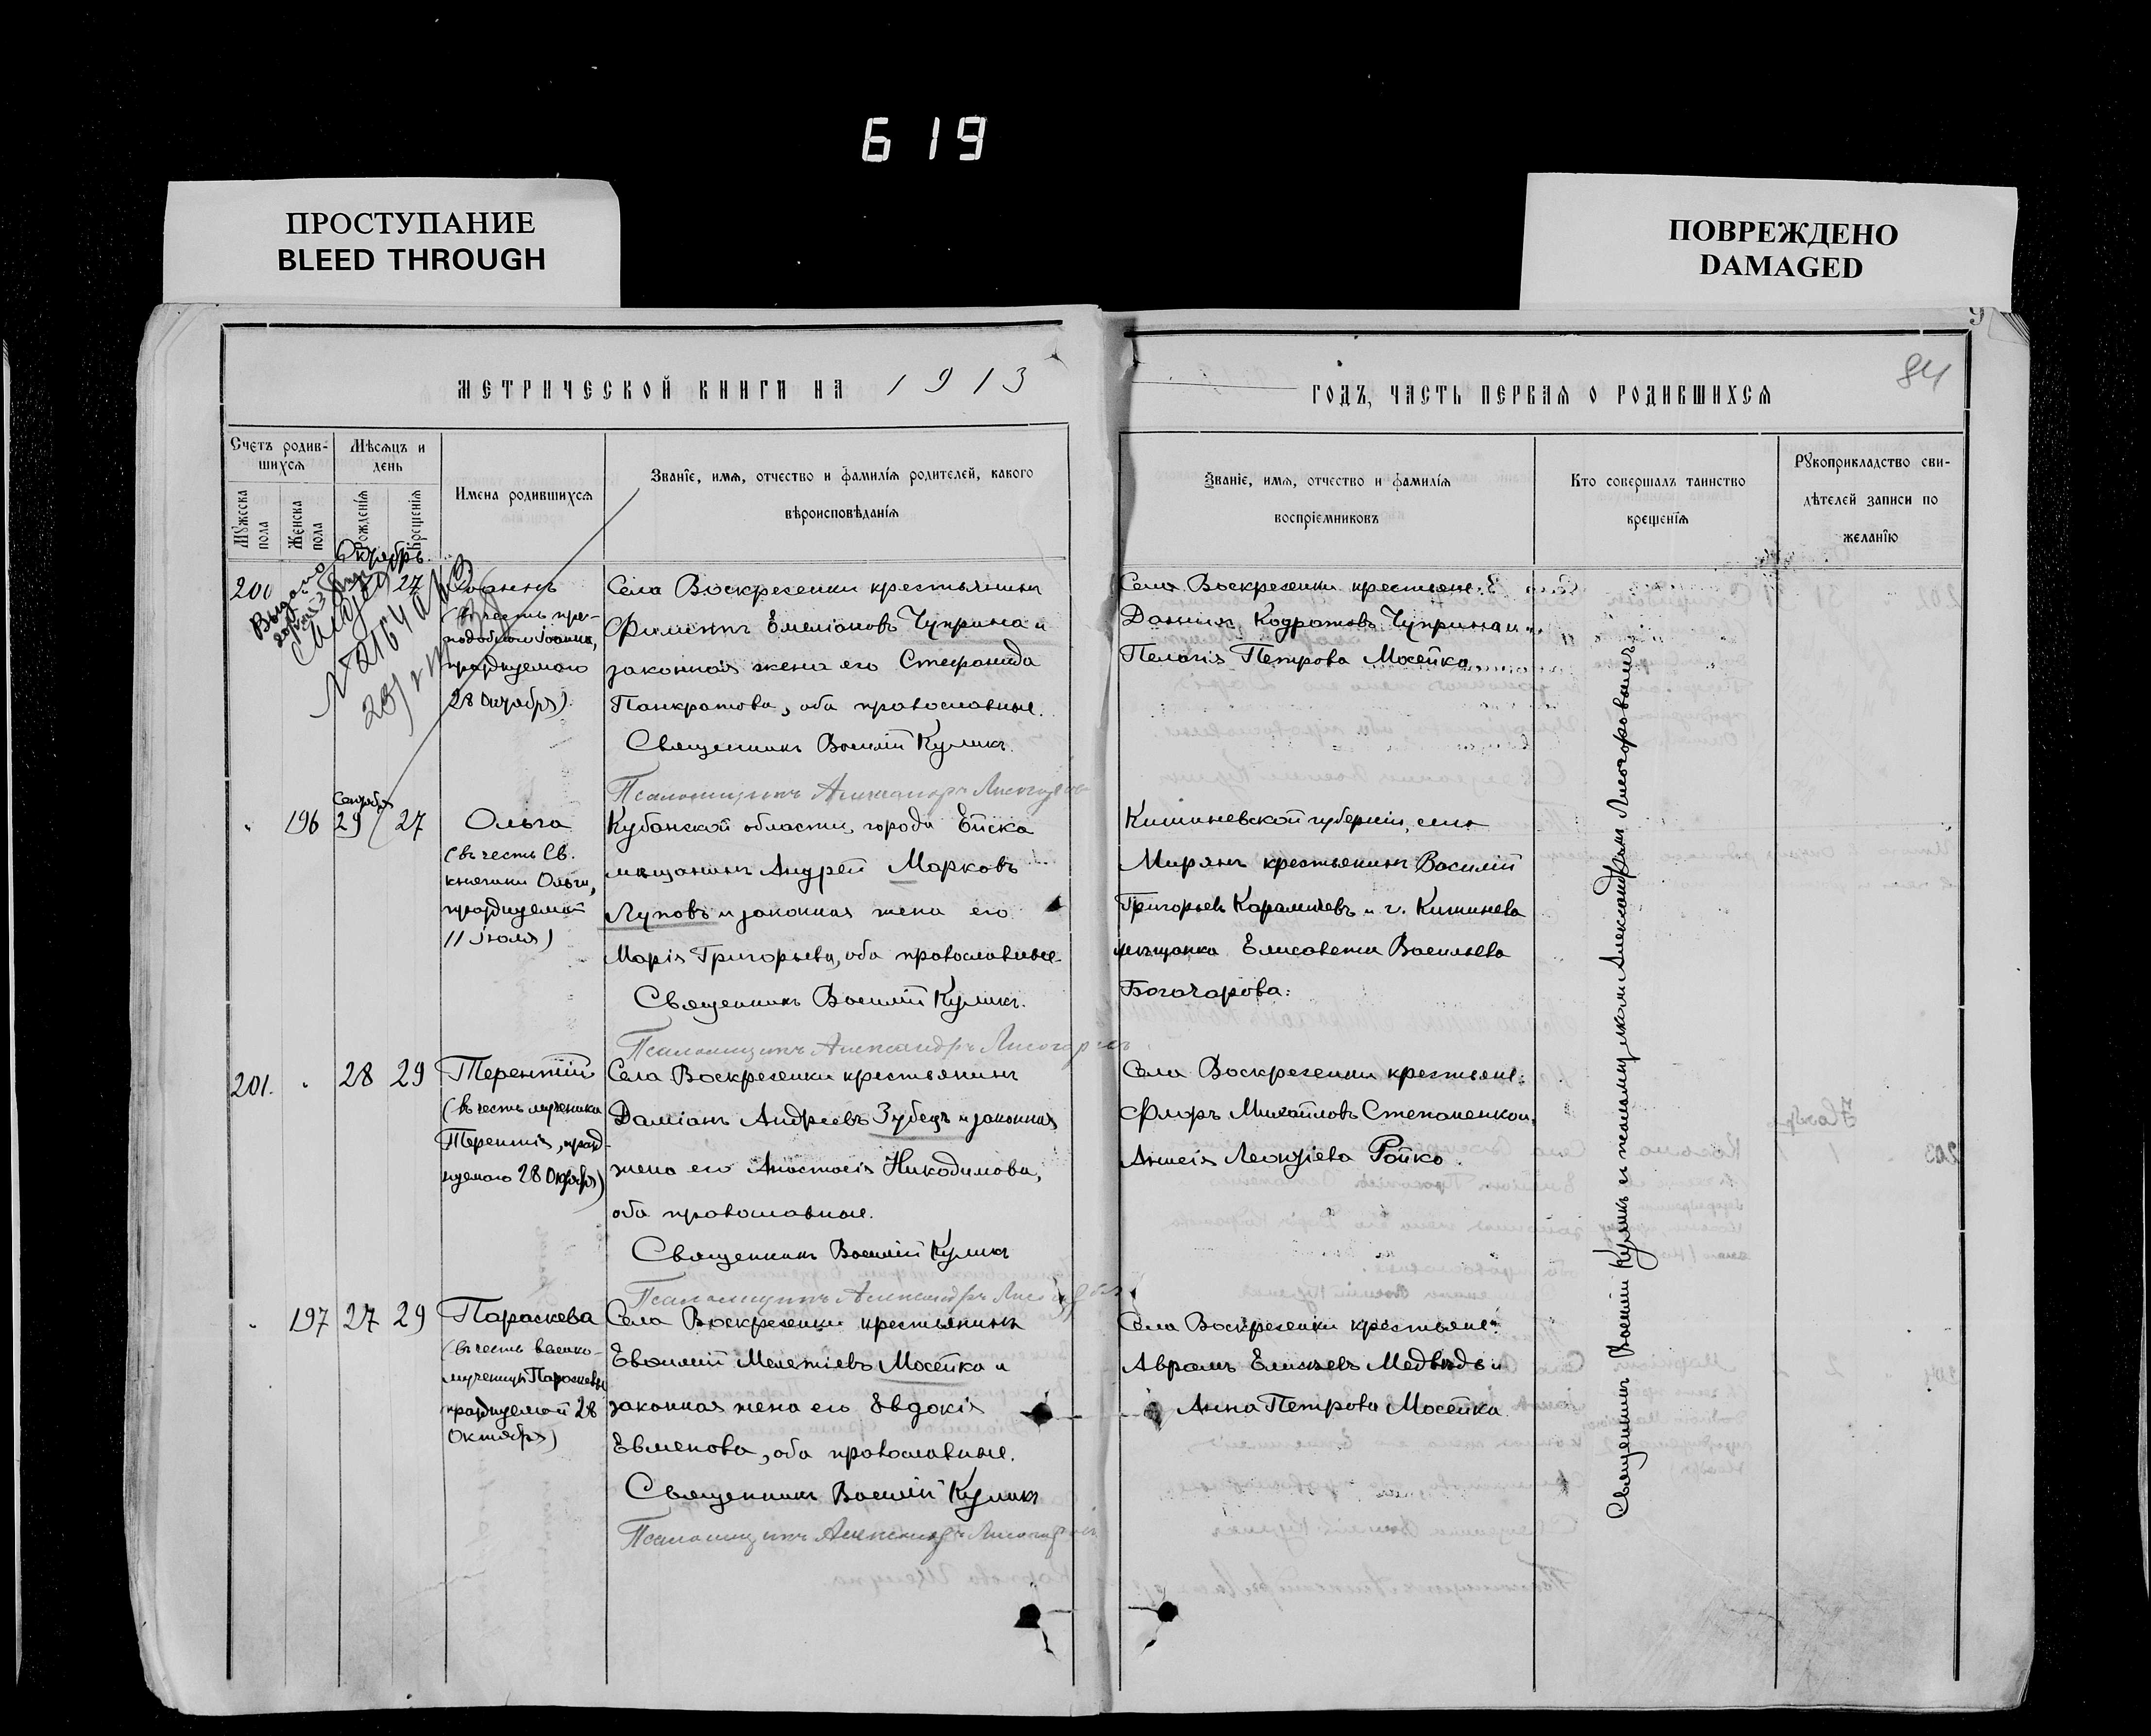 619
ПРОСТУПАНИЕ
BLEED THROUGH
ПОВРЕЖДЕНО
DAMAGED
МЕТРИЧЕСКОЙ КНИГИ НА 1913
Счетъ родив-
шихся
Мѣсяцъ и
день
Мужеска
пола
Женска
пола
Рожденія
Крещенія
Имена родившихся
Званіе, имя, отчество и фамилія родителей, какого
вѣроисповѣданія
Октябрь.
200 27 Іоаннъ
(въ честь пре-
подобнаго Іоанна,
празднуемаго
28 Октября).
Села Воскресенки крестьянинъ
Филиппъ Емеліановъ Чуприна и
законная жена его Стефанида
Панкратова, оба православные.
Священникъ Василій Куликъ.
Псаломщикъ Александръ Лисогоровъ
" 196 Сентября 29 27 Ольга
(въ честь Св.
княгини Ольги,
празднуемой
11 Іюля)
Кубанской области, города Ейска
мѣщанинъ Андрей Марковъ
Луповъ и законная жена его
Марія Григорьева, оба православные.
Священникъ Василій Куликъ.
Псаломщикъ Александръ Лисогоровъ
201. " 28 29 Терентій
(въ честь мученика
Терентія, празд-
нуемаго 28 Октября)
Села Воскресенки крестьянинъ
Даміанъ Андреевъ Зубецъ и законная
жена его Анастасія Никодимова,
оба православные.
Священникъ Василій Куликъ
Псаломщикъ Александръ Лисогоровъ
" 197 27 29 Параскева
(въ честь велико-
мученицы Параскевы
празднуемой 28
Октября)
Села Воскресенки крестьянинъ
Евѳимій Мелетіевъ Мосейка и
законная жена его Евдокія
Евменова, оба православные.
Священникъ Василій Куликъ
Псаломщикъ Александръ Лисогоровъ
84
ГОДЪ, ЧАСТЬ ПЕРВАЯ О РОДИВШИХСЯ
Званіе, имя, отчество и фамилія
воспріемниковъ
Кто совершалъ таинство
крещенія
Рукоприкладство сви-
дѣтелей записи по
желанію
Села Воскресенки крестьяне:
Даніилъ Кодратовъ Чуприна и
Пелагія Петрова Мосейка.
Кишиневской губерніи, села
Мирянъ крестьянинъ Василій
Григорьевъ и г. Кишинева
мѣщанка Елисавета Васильева
Богачарова.
Села Воскресенки крестьяне:
Флоръ Михайловъ Степаненко и
Анисія Леонтіева Ройко.
Села Воскресенки крестьяне:
Аврамъ Елисеевъ Медвѣдь и
Анна Петрова Мосейка.
Священникъ Василій Куликъ съ псаломщикомъ Александромъ Лисогоровымъ